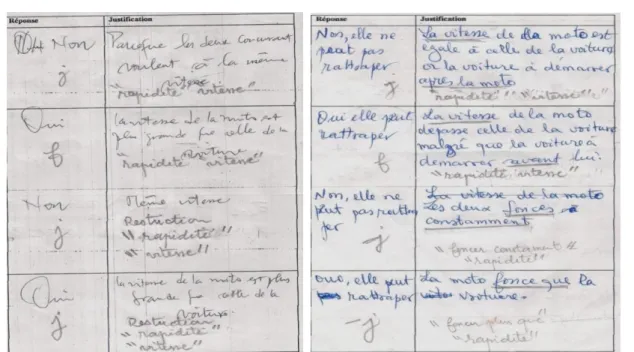 Réponse Justification
Non Parceque les deux concurrent
j roulent à la même
vitesse
"rapidité" "vitesse"
Oui la vitesse de la moto est
f plus grande que celle de la
voiture
"rapidité" "vitesse"
Non Même vitesse
j Restruction
"rapidité"
"vitesse"
Oui la vitesse de la moto est plus
j grande que celle de la
voiture
Restruction
"rapidité"
"vitesse"
Réponse Justification
Non, elle ne La vitesse de la moto est
peut pas égale à celle de la voiture
rattraper or la voiture à démarrer
j après la moto
"rapidité" "vitesse"
Oui elle peut La vitesse de la moto
rattraper dépasse celle de la voiture
f malgré que la voiture à
démarrer avant lui.
"rapidité, vitesse"
Non, elle ne La vitesse de la moto
peut pas rattra les deux fonces
per constamment
j "foncer constament"
"rapidité"
oui, elle peut La moto fonce que la
rattraper voiture.
j "foncer plus que"
"rapidité"